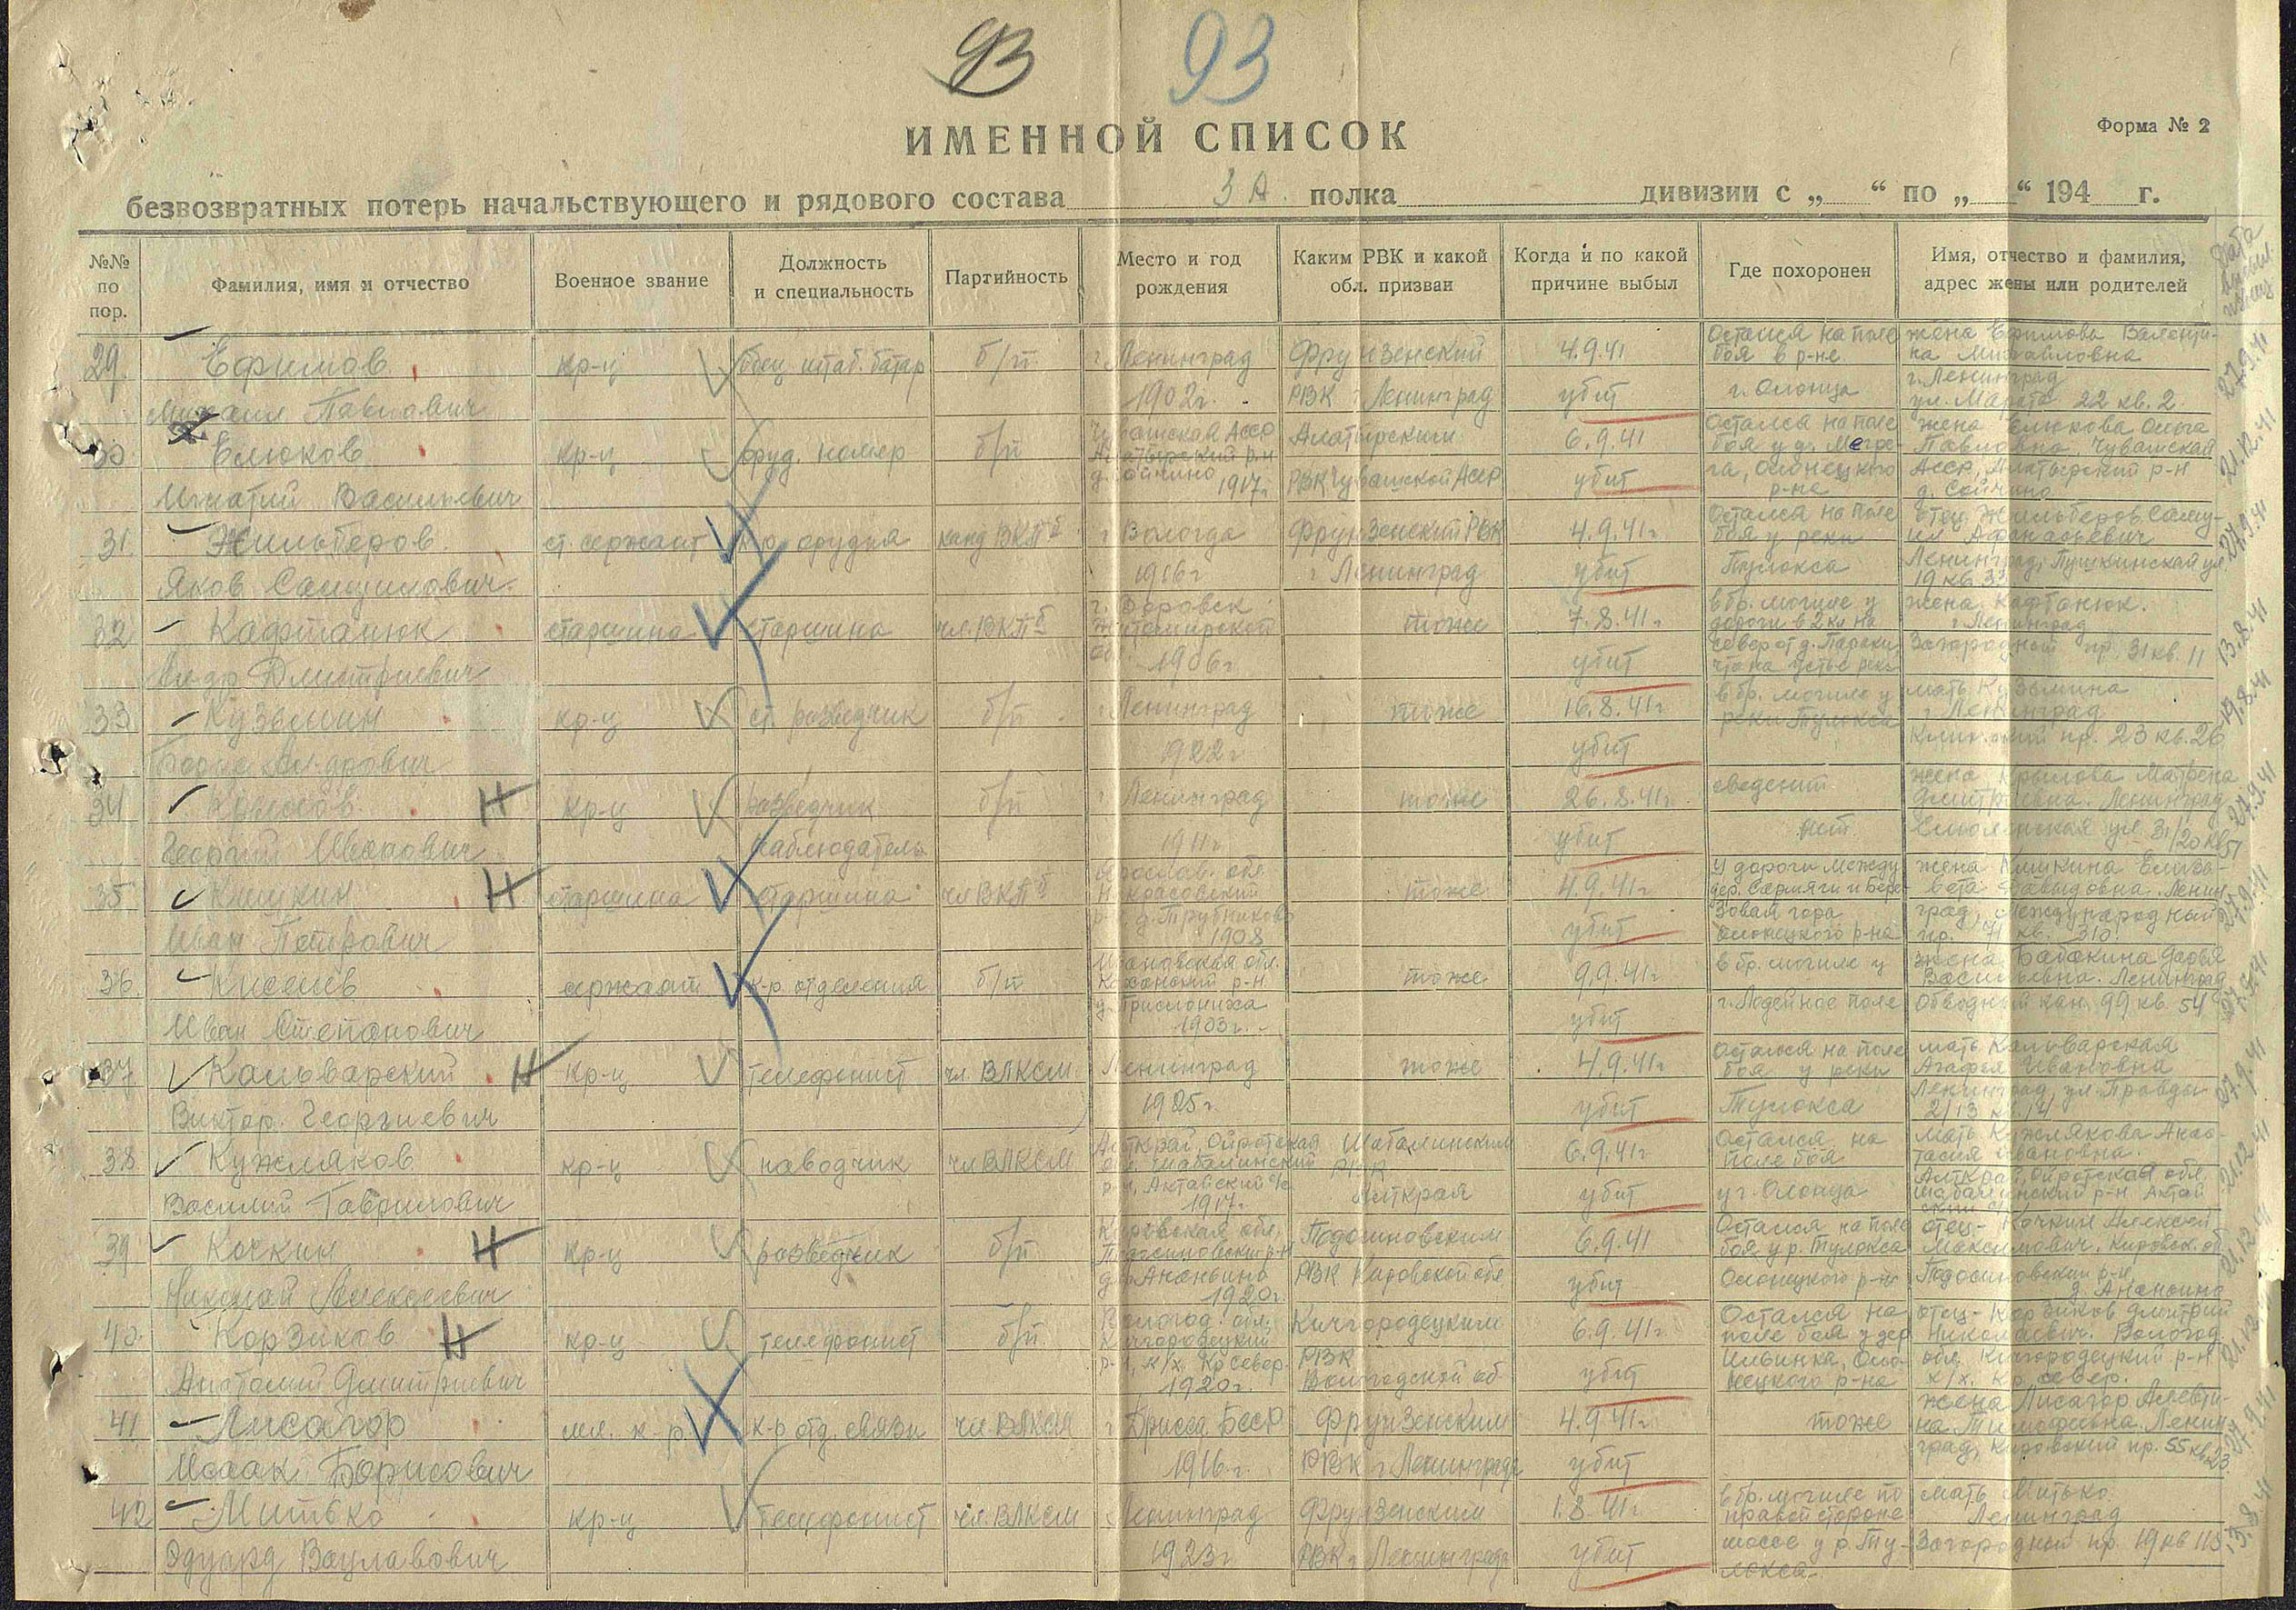 93 93
ИМЕННОЙ СПИСОК
Форма № 2
безвозвратных потерь начальствующего и рядового состава 3 А. полка дивизии с „ “ по „ “ 194 г.
№№ по пор.
Фамилия, имя и отчество
Военное звание
Должность и специальность
Партийность
Место и год рождения
Каким РВК и какой обл. призван
Когда и по какой причине выбыл
Где похоронен
Имя, отчество и фамилия, адрес жены или родителей
29. Ефимов кр-ц боец штаб. батар б/п г. Ленинград Фрунзенский 4.9.41 Остался на поле боя в р-не жена Ефимова Валенти-на Михайловна 27.9.41
Михаил Павлович 1902г. РВК г Ленинград убит г. Олонца г. Ленинград ул. Марата 22 кв. 2
30 Елюков кр-ц оруд. номер б/п Чувашская АССР Алатырский р-н Алатырским 6.9.41 Остался на поле боя у д. Мегре- жена Елюкова Ольга Павловна, Чувашская 21.12.41
Игнатий Васильевич 1917г РВК Чувашской АССР убит га, Олонецкого р-на АССР, Алатырский р-н
31. Жильберов ст. сержант к-р орудия канд ВКПб г Вологда Фрунзенский РВК 4.9.41г. Остался на поле боя у реки отец Жильберов Саму- 27.9.41
Яков Самуилович 1916г г Ленинград убит Тулокса Ленинград, Пушкинская ул
32 Кафтанюк старшина старшина чл. ВКПб г. Боровск Житомирской тоже 7.8.41г. в бр. могиле у дороги в 2км на жена Кафтанюк. г Ленинград 13.8.41
Ал-др Дмитриевич обл. 1906г убит север от д. Загородный пр. 31 кв. 11
33 Кузьмин кр-ц ст. разведчик б/п г Ленинград тоже 16.8.41г в бр. могиле у реки Тулокса мать Кузьмина г Ленинград 19.8.41
Борис Ал-дрович 1922г убит пр. 23 кв. 26
34 Крылов Н кр-ц разведчик б/п г Ленинград тоже 26.8.41г. сведений жена Крылова Матрена Дмитриевна. Ленинград 27.9.41
Георгий Иванович наблюдатель 1911г убит нет ул. 31/20 кв 51
35 Кишкин Н старшина старшина чл ВКПб Ярослав. обл. Некрасовский тоже 4.9.41г. У дороги между дер. Сармяги и Бере- жена Кишкина Елиза-вета Давыдовна. Ленин- 27.9.41
Иван Петрович р-н, д. Трубниково 1908 убит зовая гора Олонецкого р-на град, Международный пр. 41 кв. 310.
36. Киселев сержант к-р. отделения б/п Ивановская обл. тоже 9.9.41г. в бр. могиле у жена Бабакина Дарья Васильевна. Ленинград 27.9.41
Иван Степанович 1903г. убит г. Лодейное поле Обводный кан. 99 кв. 54
37 Кальварский Н кр-ц телефонист чл. ВЛКСМ Ленинград тоже 4.9.41г Остался на поле боя у реки мать Кальварская Агафья Ивановна 27.9.41
Виктор Георгиевич 1925г. убит Тулокса Ленинград, ул. Правды 2/13 кв. 14
38 Кужляков кр-ц наводчик чл ВЛКСМ Алткрай, Ойротская обл. Шабалинский Шабалинским РВК 6.9.41г Остался на поле боя мать Кужлякова Анас-тасия Ивановна. 21.12.41
Василий Гаврилович 1917г. Алткрая убит у г. Олонца Алткрай, Ойротская обл. Шабалинский р-н
39 Кочкин Н кр-ц разведчик б/п Кировская обл, Подосиновский р-н Подосиновским 6.9.41 Остался на поле боя у р. Тулокса отец - Кочкин Алексей Максимович. Кировск. об 21.12.41
Николай Алексеевич д. Ананьино 1920г. РВК Кировской обл убит Олонецкого р-на Подосиновский р-н, д. Ананьино
40. Корзиков Н кр-ц телефонист б/п Вологод. обл, Кичгородецкий Кичгородецким 6.9.41г Остался на поле боя у дер отец - Корзиков Дмитрий Николаевич. Вологод. 21.12.41
Анатолий Дмитриевич р-н, к/х. Кр север 1920г. РВК Вологодской об. убит Ильинка, Оло-нецкого р-на обл. Кичгородецкий р-н к/х. Кр. север.
41 Лисагор мл. к-р. к-р отд. связи чл. ВЛКСМ г Дрисса БССР Фрунзенским 4.9.41г. тоже жена Лисагор на Тимофеевна. Ленин- 27.9.41
Исаак Борисович 1916г. РВК г Ленинграда убит град, Кировский пр. 55 кв. 23
42 Митько кр-ц телефонист чл. ВЛКСМ Ленинград Фрунзенским 1.8.41г. в бр. могиле по правой стороне мать Митько Ленинград 13.8.41
Эдуард Вацлавович 1923г РВК г Ленинграда убит шоссе у р. Ту-локса Загородный пр. 19 кв 113